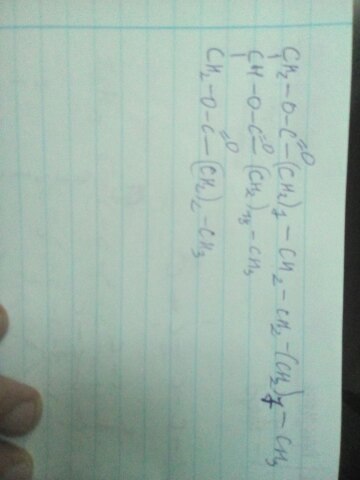 CH₂-O-C(=O)-(CH₂)₇-CH₂-CH₂-(CH₂)₇-CH₃
CH-O-C(=O)-(CH₂)₁₃-CH₃
CH₂-O-C(=O)-(CH₂)₂-CH₃